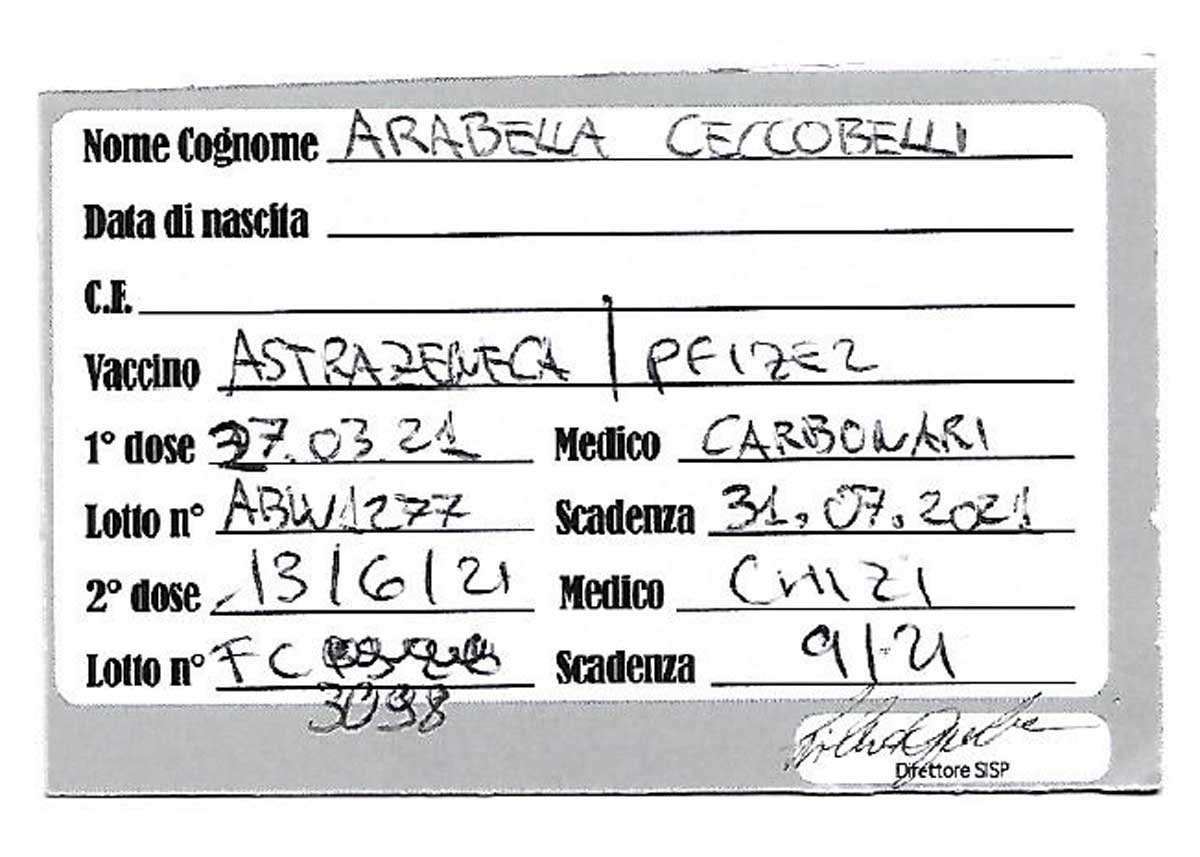 Nome Cognome ARABELLA CECCOBELLI
Data di nascita
C.F.
Vaccino ASTRAZENECA | PFIZER
1° dose 27.03.21 Medico CARBONARI
Lotto n° ABW1277 Scadenza 31.07.2021
2° dose 13/6/21 Medico CHIZI
Lotto n° FC Scadenza 9/21
3098
Direttore SISP